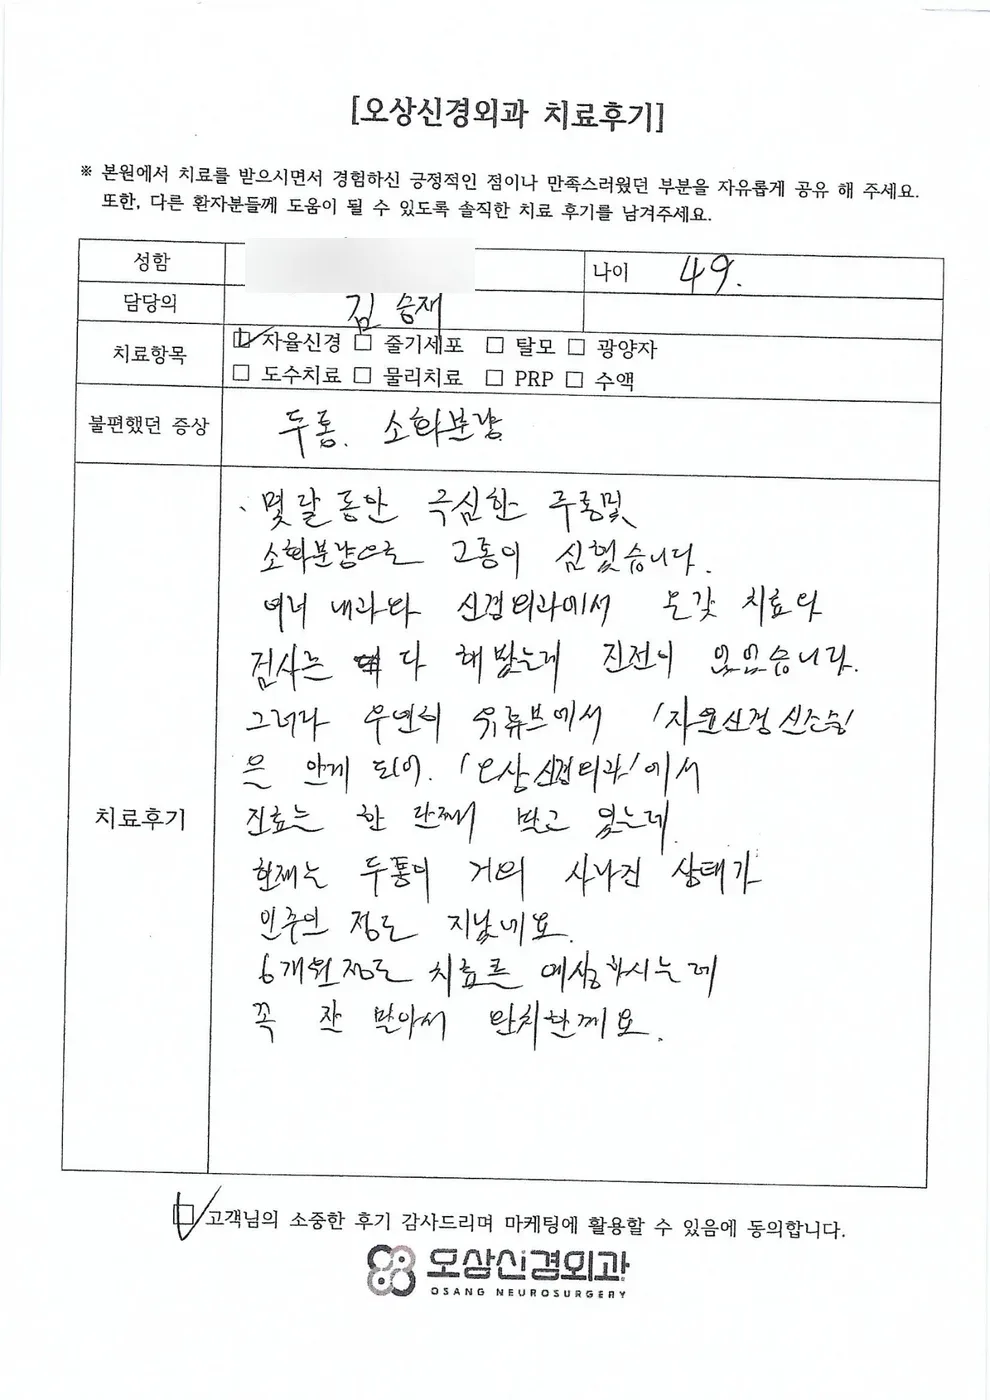 [오상신경외과 치료후기]
※ 본원에서 치료를 받으시면서 경험하신 긍정적인 점이나 만족스러웠던 부분을 자유롭게 공유 해 주세요.
또한, 다른 환자분들께 도움이 될 수 있도록 솔직한 치료 후기를 남겨주세요.
성함 나이 49.
담당의 김승재
치료항목 ☑ 자율신경 □ 줄기세포 □ 탈모 □ 광양자
□ 도수치료 □ 물리치료 □ PRP □ 수액
불편했던 증상 두통. 소화불량
몇 달 동안 극심한 두통및
소화불량으로 고통이 심했습니다.
여러 내과와 신경외과에서 온갖 치료와
검사는 다 해 봤는데 진전이 없었습니다.
그러다 우연히 유튜브에서 '자율신경 신소송'
을 알게 되어. '오상신경외과'에서
진료는 한 달째 받고 있는데
현재는 두통이 거의 사라진 상태가
일주일 정도 지났네요.
6개월정도 치료를 예상하시는데
치료후기
꼭 잘 받아서 완치할께요.
☑ 고객님의 소중한 후기 감사드리며 마케팅에 활용할 수 있음에 동의합니다.
오상신경외과
OSANG NEUROSURGERY